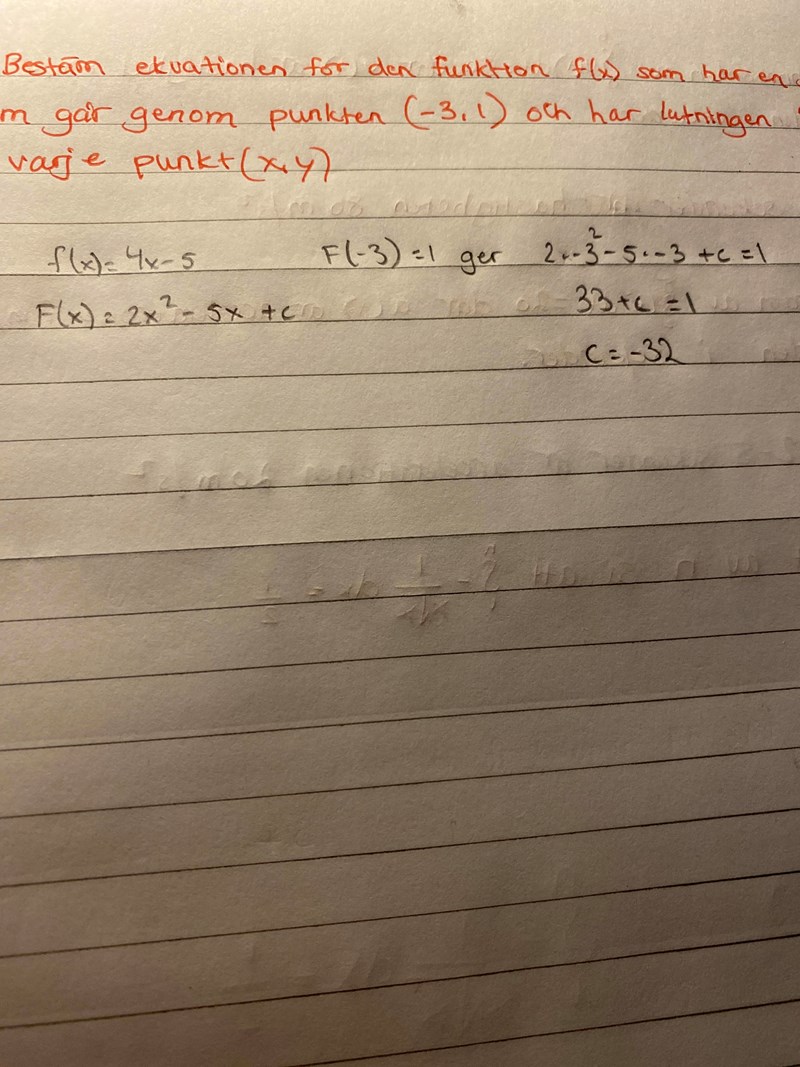 Bestäm ekvationen för den funktion f(x) som har en
m går genom punkten (-3,1) och har lutningen
varje punkt (x,y)
f(x) = 4x-5    F(-3) = 1 ger 2·-3² - 5·-3 + c = 1
F(x) = 2x² - 5x + c    33 + c = 1
c = -32